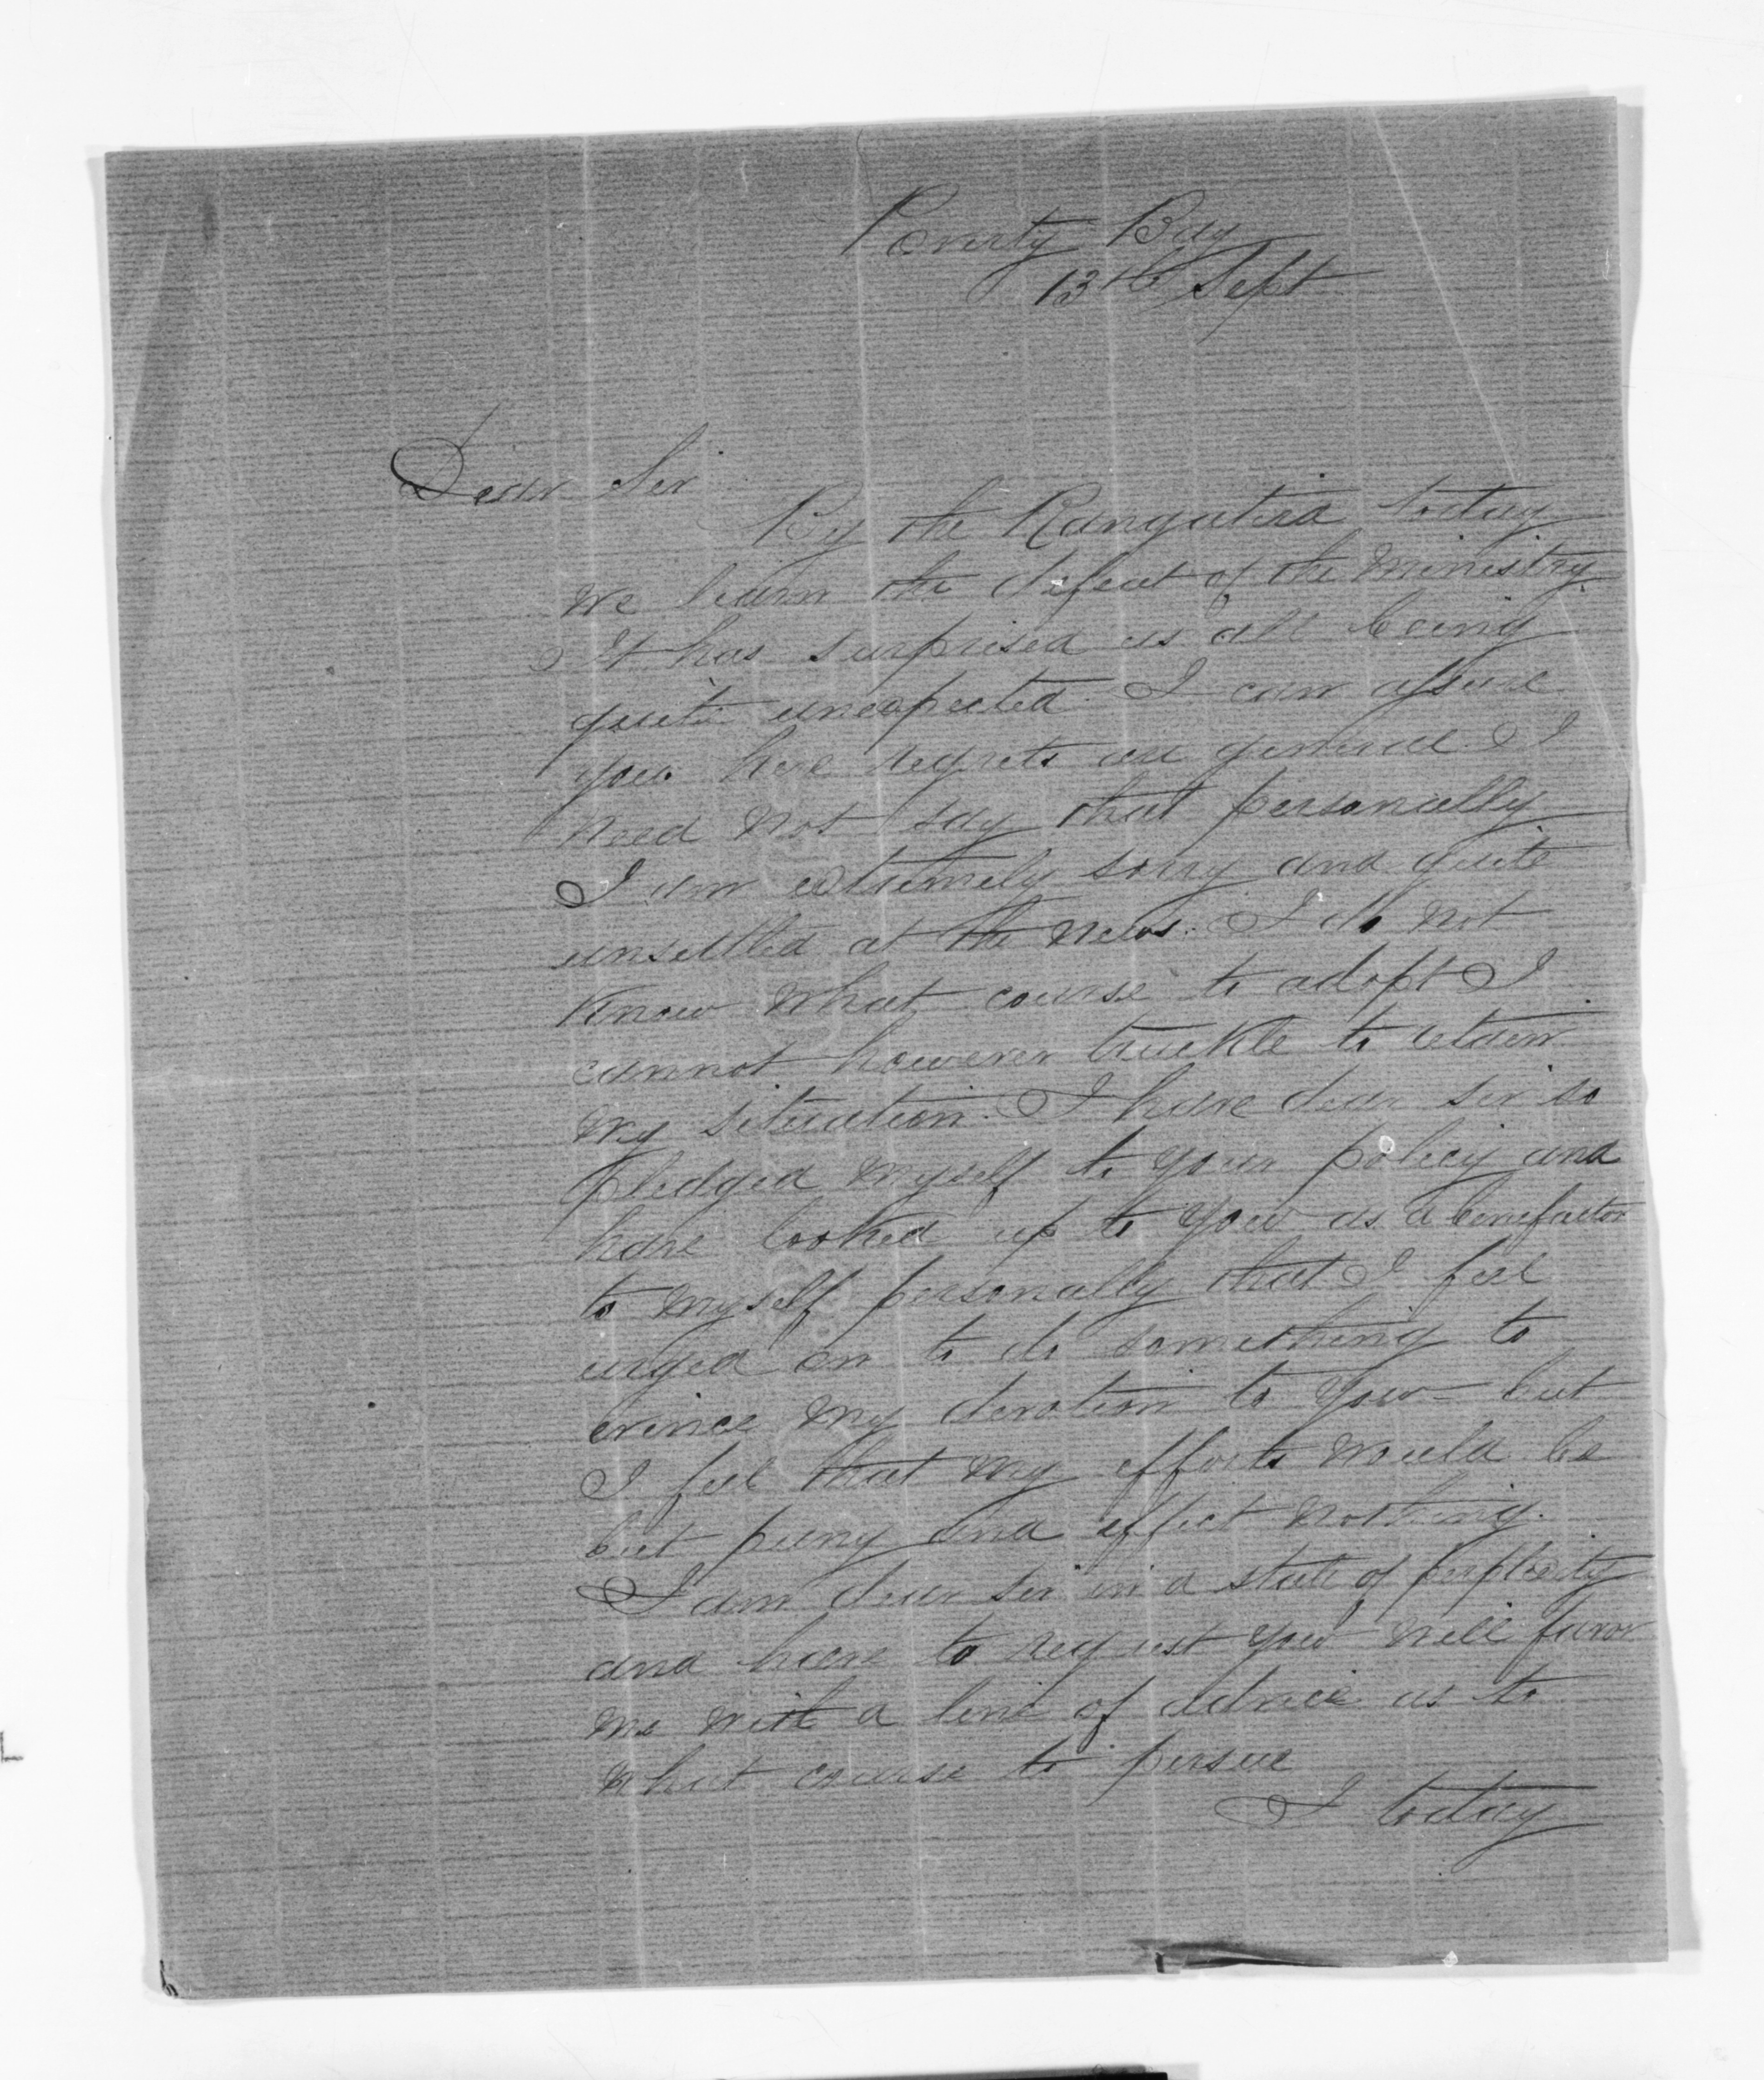 Poverty Bay
13th Sept
Dear Sir
By the Rangatira today
we learn the defeat of the Ministry.
It has surprised us all being
quite unexpected. I can assure
you here regrets are general. I
need not say that personally
I am extremely sorry and quite
unsettled at the news. I do not
know what course to adopt I
cannot however truckle to retain
my situation. I have dear sir so
pledged myself to your policy and
have looked up to you as a benefactor
to myself personally that I feel
urged on to do something to
evince my devotion to you – but
I feel that my efforts would be
but puny and effect nothing.
I am dear sir in a state of perplexity
and have to request you will favor
me with a line of advice as to
what course to persue
I today